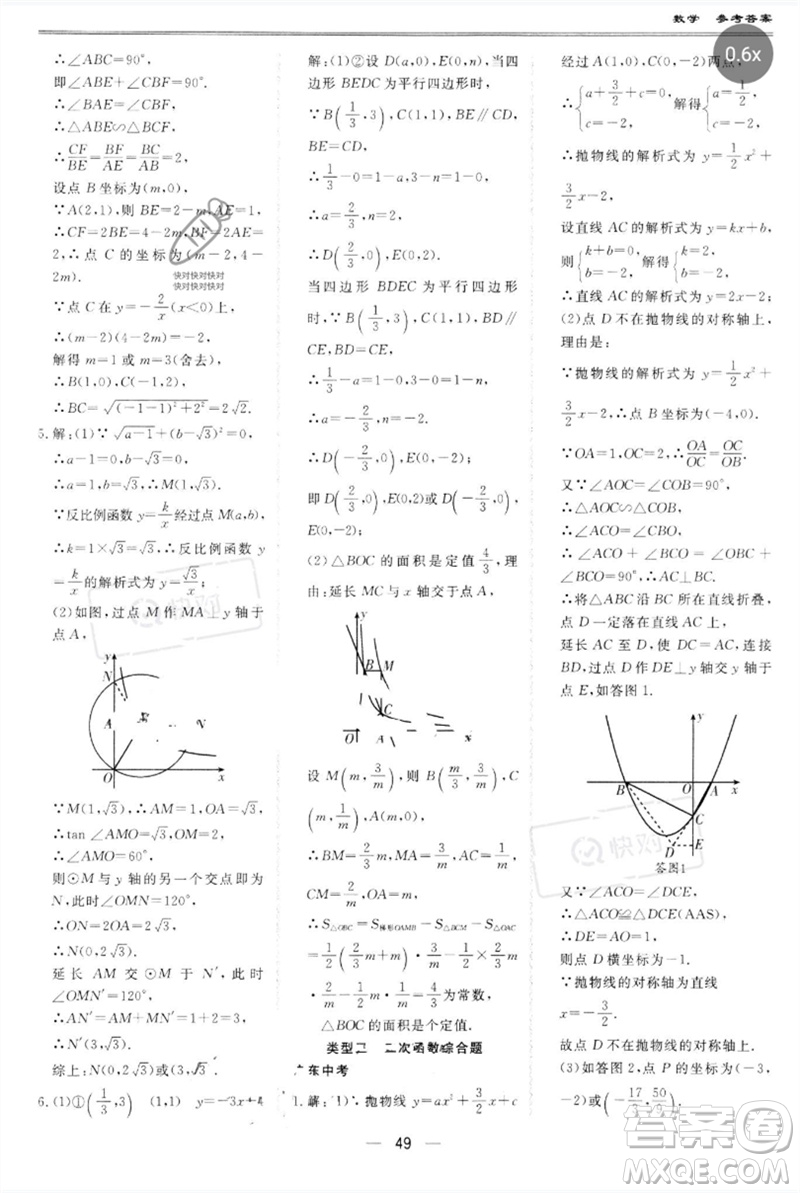 数学 参考答案
0.6x
∴∠ABC=90°,
即∠ABE+∠CBF=90°,
∴∠BAE=∠CBF,
∴△ABE∽△BCF,
∴CF/BE=BF/AE=BC/AB=2,
设点 B 坐标为(m,0),
∵A(2,1),则 BE=2-m,AE=1,
∴CF=2BE=4-2m,BF=2AE=
2,∴点 C 的坐标为(m-2,4-
2m).
快对快对快对
快对快对快对
∵点 C 在 y=-2/x(x<0)上,
∴(m-2)(4-2m)=-2,
解得 m=1或 m=3(舍去),
∴B(1,0),C(-1,2),
∴BC=√((-1-1)²+2²)=2√2.
5.解:(1)∵√(a-1)+(b-√3)²=0,
∴a-1=0,b-√3=0,
∴a=1,b=√3,∴M(1,√3).
∵反比例函数 y=k/x经过点M(a,b),
∴k=1×√3=√3,∴反比例函数 y=
k/x的解析式为 y=√3/x;
(2)如图,过点 M 作 MA⊥y 轴于
点 A,
y
N
A
N
O
x
∵M(1,√3),∴AM=1,OA=√3,
∴tan ∠AMO=√3,
∴∠AMO=60°.
则⊙M与 y 轴的另一个交点即为
N,此时∠OMN=120°,
∴ON=2OA=2√3,
∴N(0,2√3).
延长 AM 交⊙M 于 N′,此时
∠OMN′=120°,
∴AN′=AM+MN′=1+2=3,
∴N(3,√3).
综上:N(0,2√3)或(3,√3).
6.(1)①(1/3,3) (1,1) y=-3x+4
解:(1)②设 D(a,0),E(0,n),当四
边形 BEDC 为平行四边形时,
∵B(1/3,3),C(1,1),BE∥CD,
BC∥DE,
∴1/3-0=1-a,3-n=1-0,
∴a=2/3,n=2.
∴D(2/3,0),E(0,2).
当四边形 BDEC 为平行四边形
时,∵B(1/3,3),C(1,1),BD∥
CE,BC∥DE,
∴1/3-a=1-0,3-0=1-n,
∴a=-2/3,n=-2.
∴D(-2/3,0),E(0,-2).
即 D(2/3,0),E(0,2)或D(-2/3,0),
E(0,-2).
(2)△BOC 的面积是定值4/3,
理由:延长 MC与 x 轴交于点 A,
y
B
M
C
O
A
x
设 M(m,3/m),则 B(m/3,3/m),C
(m,1/m),A(m,0),
∴BM=2/3m,AC=1/m,
CM=2/m,
∴S△OBC=S梯形OAMB-S△BCM-S△OAC=
1/2(2/3m+m)·3/m-1/2×2/3m
·2/m-1/2m·1/m=4/3为常数,
△BOC 的面积是定值.
类型二 二次函数综合题
广东中考
1.解:(1)∵抛物线 y=ax²+3/2x+c
经过 A(1,0),C(0,-2)两点,
∴{a+3/2+c=0, c=-2, 解得{a=1/2, c=-2,
∴抛物线的解析式为 y=1/2x²+
3/2x-2,
设直线 AC 的解析式为 y=kx+b,
则{k+b=0, b=-2, 解得{k=2, b=-2,
∴直线 AC 的解析式为 y=2x-2;
(2)点 D 不在抛物线的对称轴上,
理由是:
∵抛物线的解析式为 y=1/2x²+
3/2x-2,∴点 B 坐标为(-4,0).
∵OA=1,OC=2,∴OA/OC=OC/OB.
又∵∠AOC=∠COB=90°,
∴△AOC∽△COB,
∴∠ACO=∠CBO,
∴∠ACO+∠BCO=∠OBC+
∠BCO=90°,∴AC⊥BC,
∴将△ABC 沿 BC 所在直线折叠,
点 D 一定落在直线 AC 上,
延长 AC 至 D,使 DC=AC,连接
BD,过点 D 作 DE⊥y 轴交 y轴于
点 E,如答图 1.
y
B
O
A
x
C
D
E
答图1
又∵∠ACO=∠DCE,
∴△ACO≌△DCE(AAS),
∴DE=AO=1,
则点 D 横坐标为-1.
∵抛物线的对称轴为直线
x=-3/2,
故点 D 不在抛物线的对称轴上.
(3)如答图 2,点 P 的坐标为(-2,
-2)或(-17/3,50/9).
49
快对
快对
答案圈
MXQE.COM